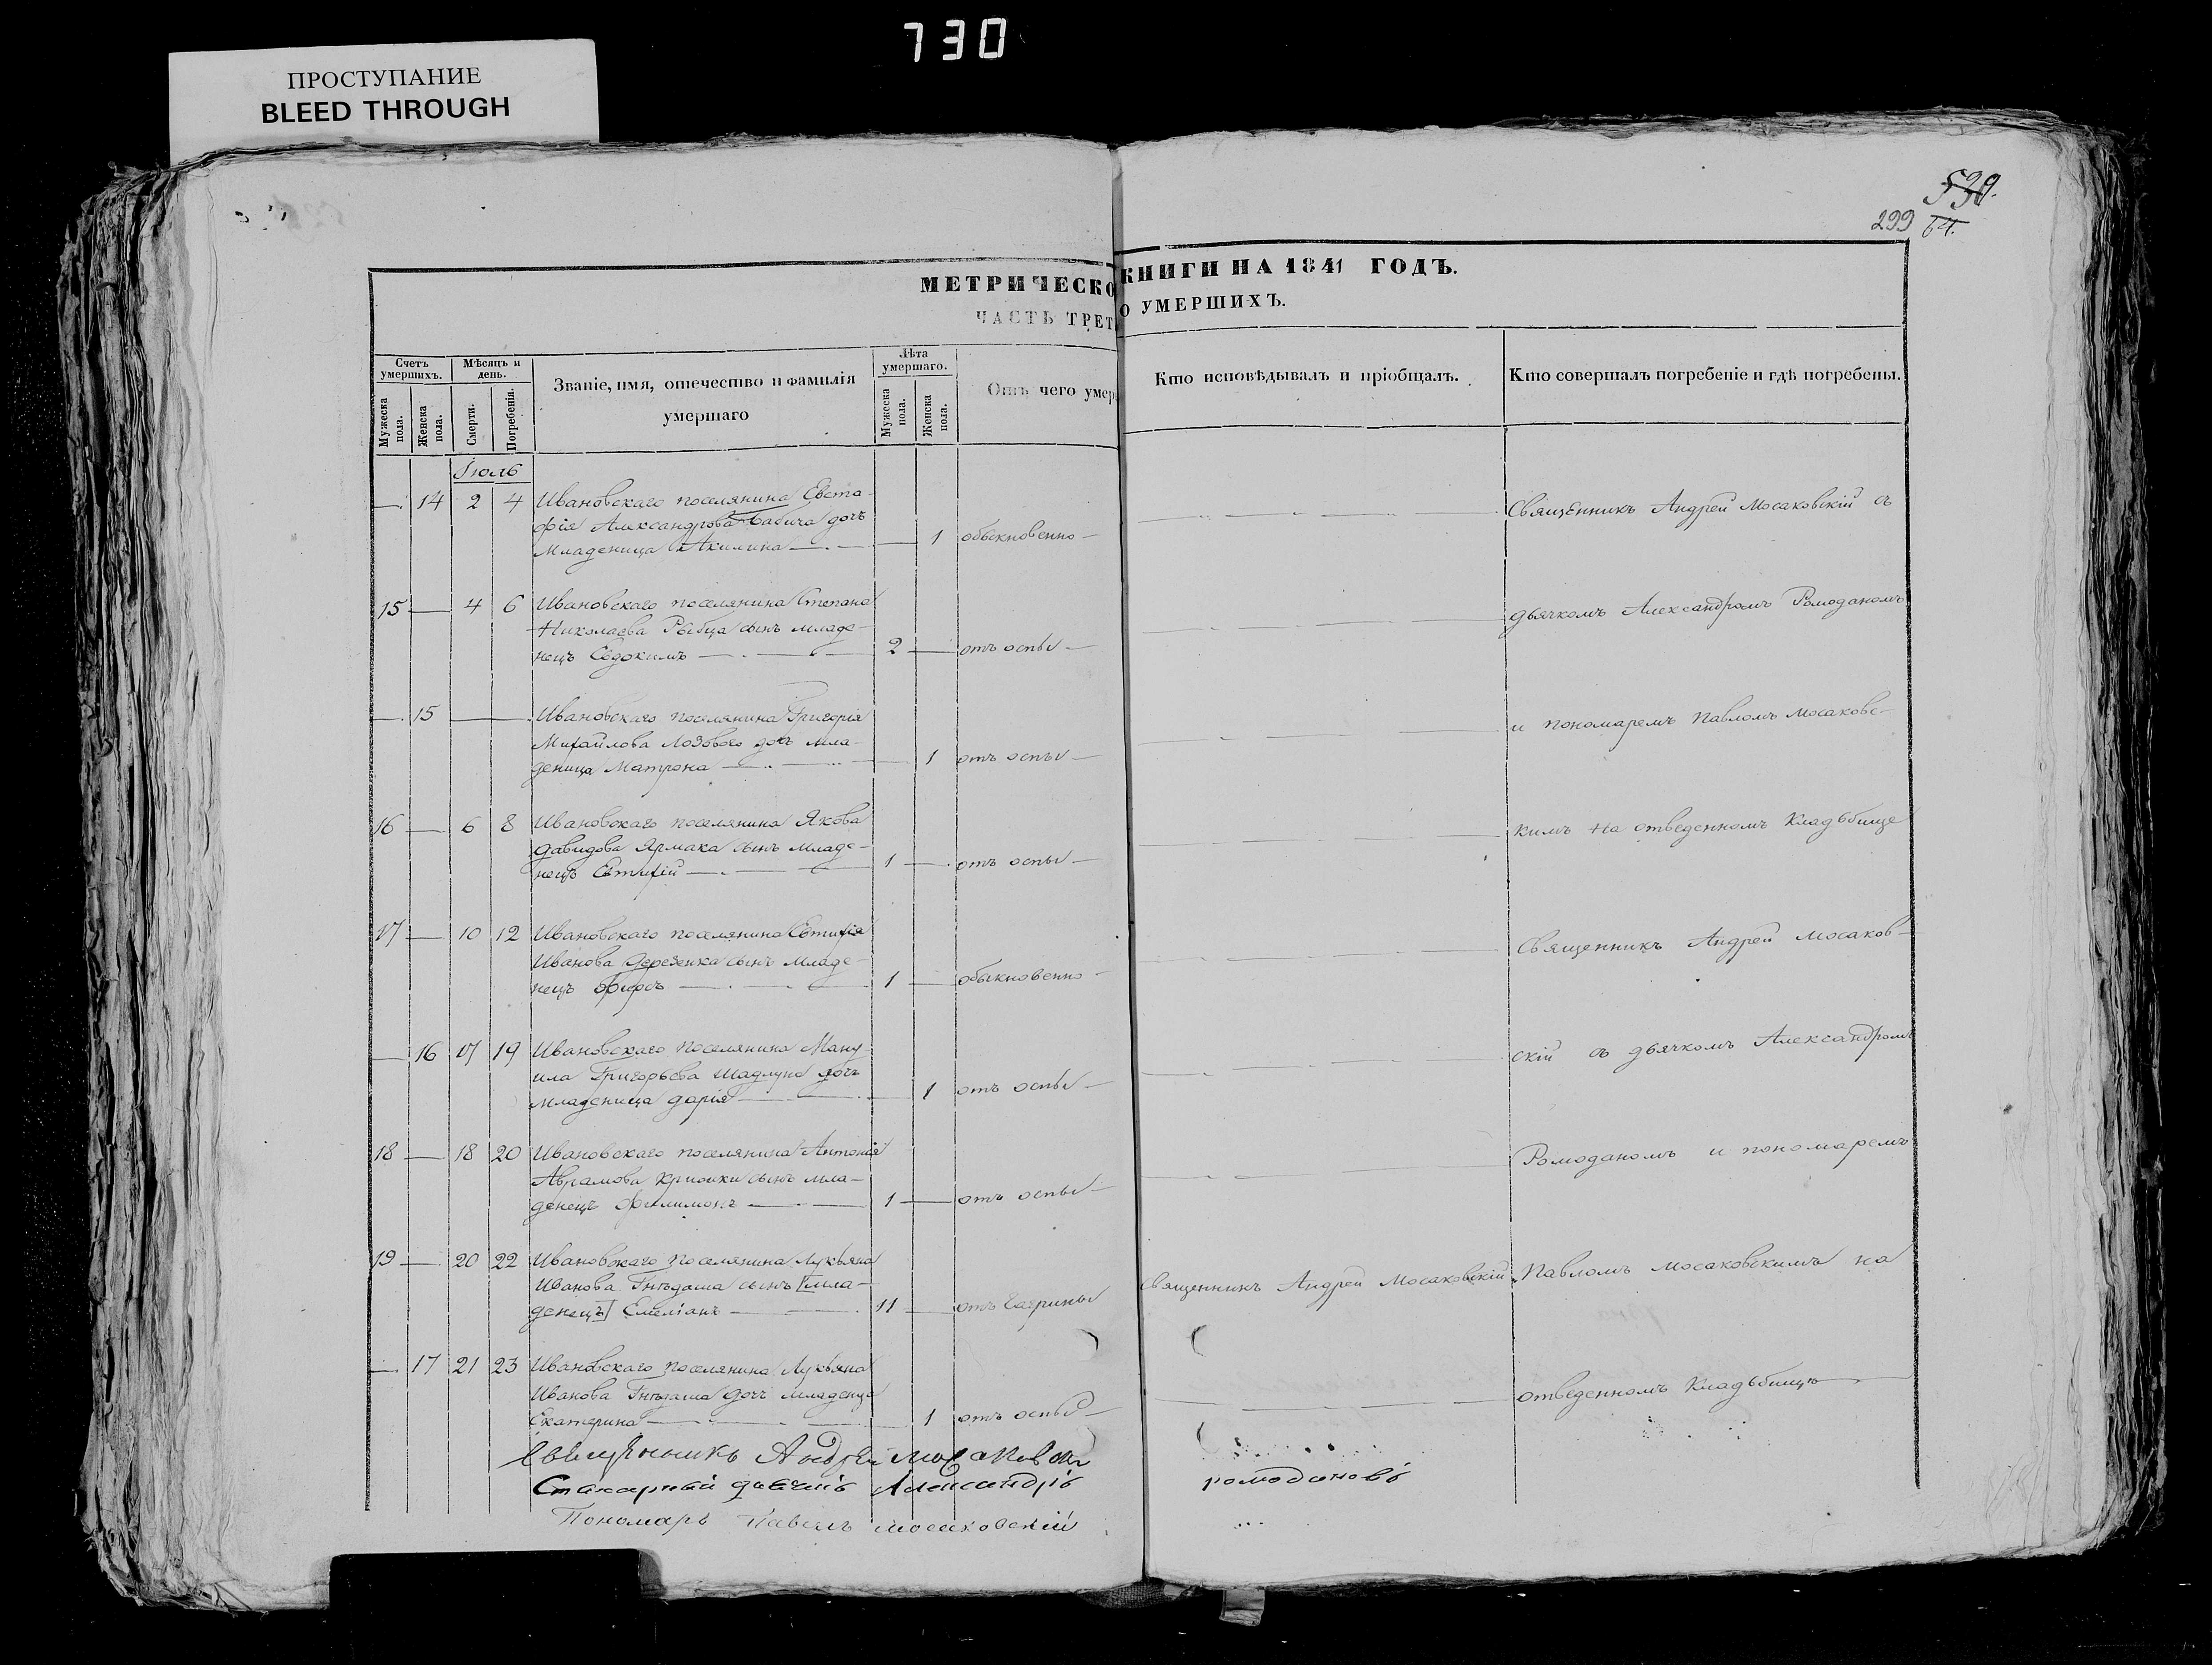 730
ПРОСТУПАНИЕ
BLEED THROUGH
539.
299 64.
МЕТРИЧЕСКО КНИГИ НА 1841 ГОДЪ.
ЧАСТЬ ТРЕТ О УМЕРШИХЪ.
Счетъ умершихъ.
Мужеска пола.
Женска пола.
Мѣсяцъ и день.
Смерти.
Погребенія.
Званіе, имя, отечество и фамилія умершаго
Лѣта умершаго.
Мужеска пола.
Женска пола.
Отъ чего умер
Кто исповѣдывалъ и пріобщалъ.
Кто совершалъ погребеніе и гдѣ погребены.
Іюль
— 14 2 4 Ивановскаго поселянина Евста-
фія Александрова Бабича дочь
младеница Акилина — 1 обыкновенно —
Священникъ Андрей Мосаковскій съ
15 — 4 6 Ивановскаго поселянина Степана
Николаева Рыбца сынъ младе-
нецъ Евдокимъ — 2 — отъ оспы —
дьячкомъ Александромъ Ромоданомъ
— 15 — Ивановскаго поселянина Григорія
Михайлова Лозового дочь мла-
деница Матрона — 1 отъ оспы —
и пономаремъ Павломъ Мосаковс-
16 — 6 8 Ивановскаго поселянина Якова
Давидова Ярмака сынъ младе-
нецъ Евтихій — 1 — отъ оспы —
кимъ на отведенномъ Кладьбище
17 — 10 12 Ивановскаго поселянина Евтихія
Иванова сынъ младе-
нецъ — 1 — обыкновенно —
Священникъ Андрей Мосаков-
— 16 17 19 Ивановскаго поселянина Ману-
ила Григорьева Шадлуна дочь
младеница Дарія — 1 отъ оспы —
скій съ дьячкомъ Александромъ
18 — 18 20 Ивановскаго поселянина Антонія
Аврамова сынъ мла-
денецъ Филимонъ — 1 — отъ оспы —
Ромоданомъ и пономаремъ
19 — 20 22 Ивановскаго поселянина Лукьяна
Иванова Гнѣдаша сынъ [мла-
денецъ] Емеліанъ — 11 — отъ
Священникъ Андрей Мосаковскій
Павломъ Мосаковскимъ на
— 17 21 23 Ивановскаго поселянина Лукьяна
Иванова Гнѣдаша дочь младенца
Екатерина — 1 отъ оспы —
отведенномъ Кладьбищѣ —
Священникъ Андрей Мосаковскій
дьячекъ Александръ ромодановъ
Пономарь Павелъ мосаковскій